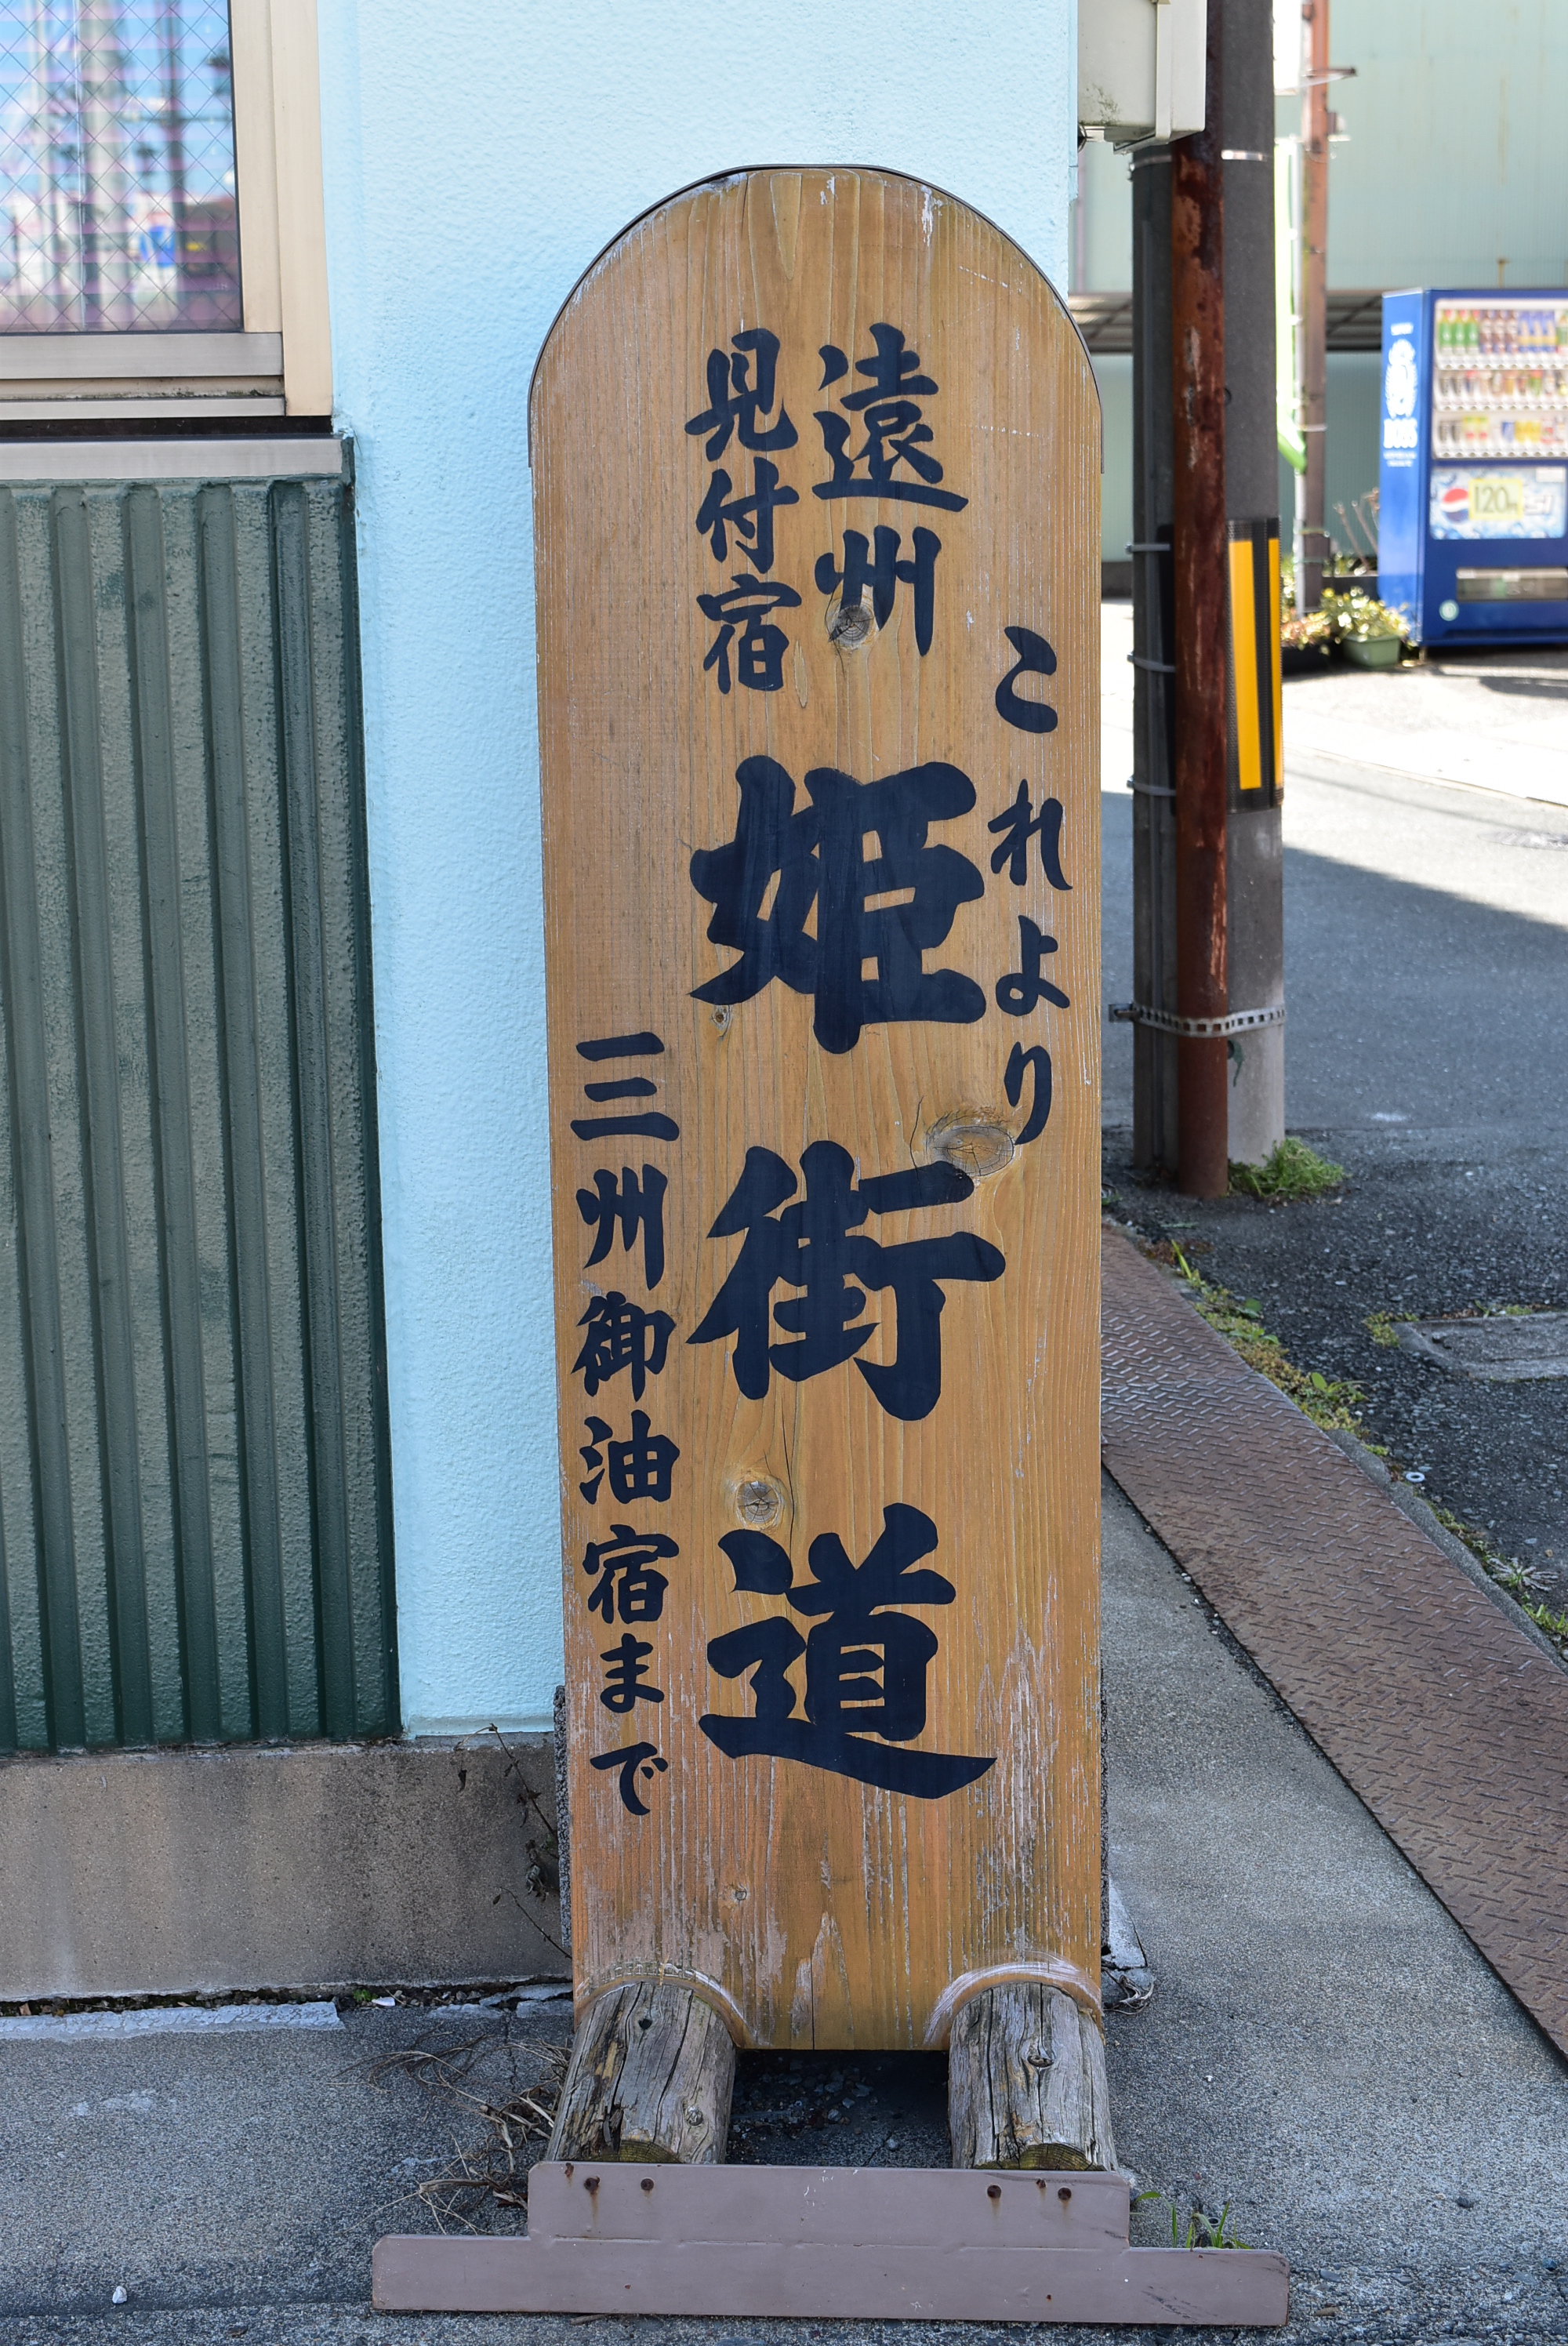 これより
遠州
見付宿
姫街道
三州御油宿まで
BOSS
120円